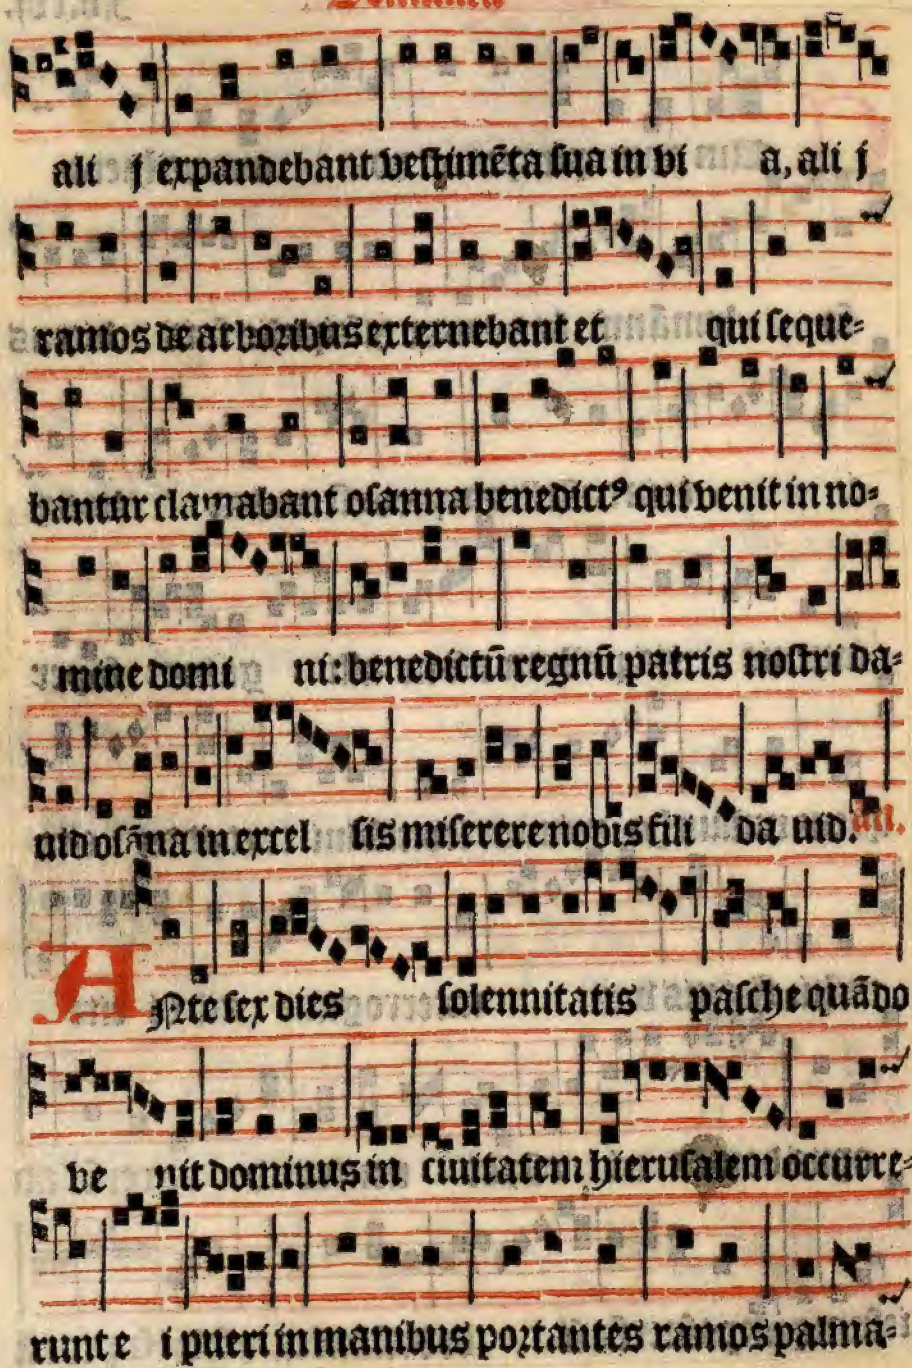 ali j expandebant vestimēta sua in vi a, ali j
ramos de arboribus externebant et qui seque=
bantur clamabant osanna benedictꝰ qui venit in no=
mine domi ni: benedictū regnū patris nostri da=
uid osāna in excel sis miserere nobis fili da uid. añ.
ANte sex dies solennitatis pasche quādo
ve nit dominus in ciuitatem hierusalem occurre=
runt e i pueri in manibus portantes ramos palma=